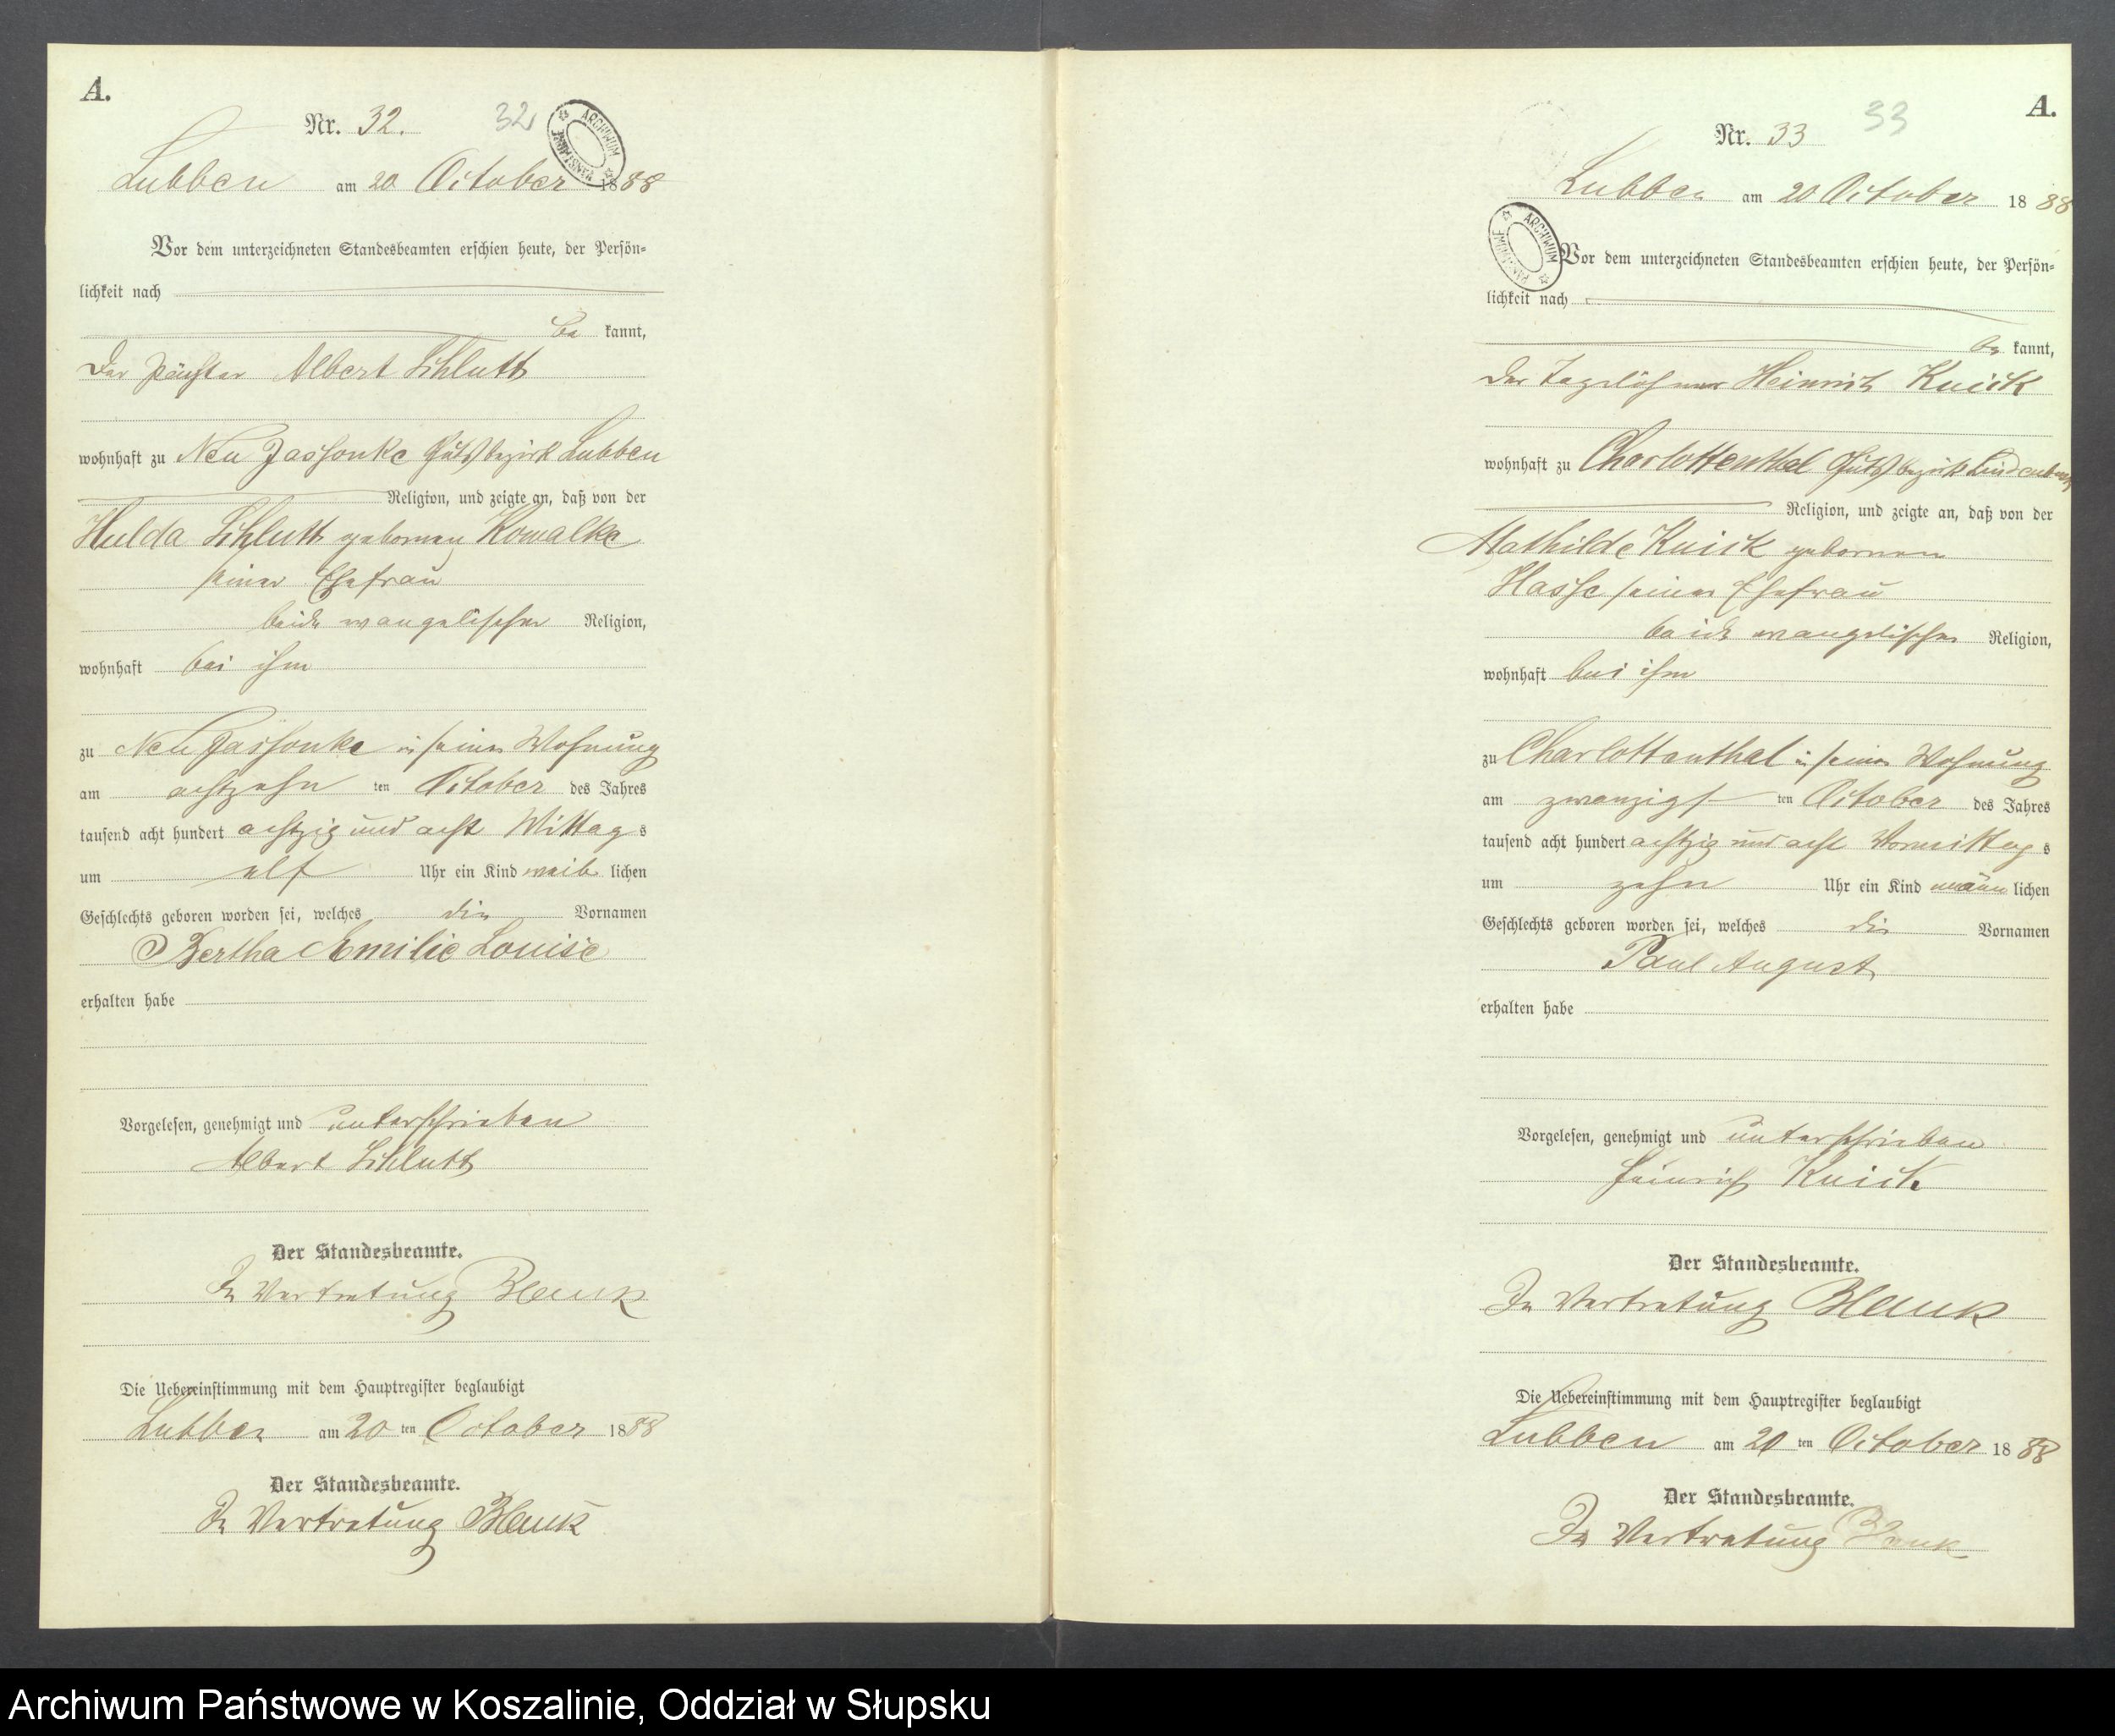 A.
Nr. 32.
32
ARCHIWUM PAŃSTWOWE
Lubben am 20 October 1888
Vor dem unterzeichneten Standesbeamten erschien heute, der Persön-
lichkeit nach
be kannt,
der Pächter Albert Schlutt
wohnhaft zu Neu Jassonke Gutsbezirk Lubben
Religion, und zeigte an, daß von der
Hulda Schlutt gebornen Kowalke
seiner Ehefrau
beide evangelischer Religion,
wohnhaft bei ihm
zu Neu Jassonke in seiner Wohnung
am achtzehn ten October des Jahres
tausend acht hundert achtzig und acht Mittag s
um elf Uhr ein Kind weib lichen
Geschlechts geboren worden sei, welches die Vornamen
Bertha Emilie Louise
erhalten habe
Vorgelesen, genehmigt und unterschrieben
Albert Schlutt
Der Standesbeamte.
In Vertretung Blank
Die Uebereinstimmung mit dem Hauptregister beglaubigt
Lubben am 20 ten October 1888
Der Standesbeamte.
In Vertretung Blank
A.
Nr. 33
33
Lubben am 20 October 18 88
ARCHIWUM PAŃSTWOWE
Vor dem unterzeichneten Standesbeamten erschien heute, der Persön-
lichkeit nach
be kannt,
der Tagelöhner Heinrich Knick
wohnhaft zu Charlottenthal Gutsbezirk Lindenbusch
Religion, und zeigte an, daß von der
Mathilde Knick gebornen
Hasse seiner Ehefrau
beide evangelischer Religion,
wohnhaft bei ihm
zu Charlottenthal in seiner Wohnung
am zwanzigs ten October des Jahres
tausend acht hundert achtzig und acht Vormittag s
um zehn Uhr ein Kind männ lichen
Geschlechts geboren worden sei, welches die Vornamen
Paul August
erhalten habe
Vorgelesen, genehmigt und unterschrieben
Heinrich Knick
Der Standesbeamte.
In Vertretung Blank
Die Uebereinstimmung mit dem Hauptregister beglaubigt
Lubben am 20 ten October 18 88
Der Standesbeamte.
In Vertretung Blank
Archiwum Państwowe w Koszalinie, Oddział w Słupsku